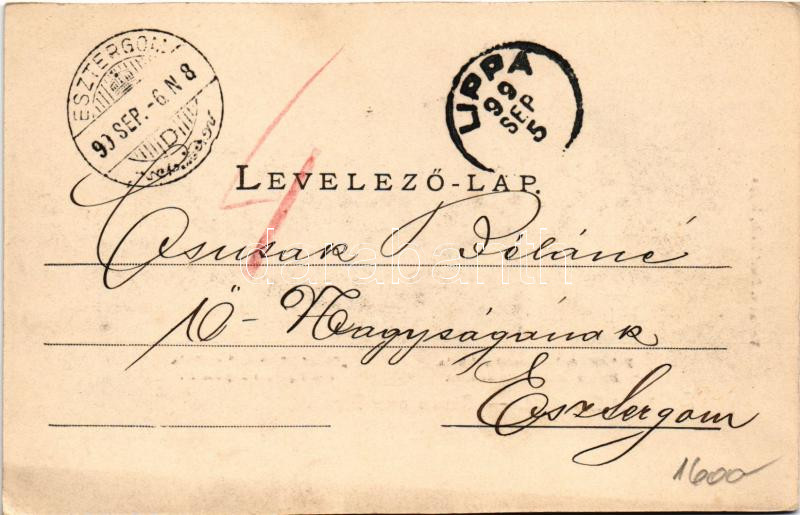 ESZTERGOM
99 SEP. -6. N 8
D
LIPPA
99
SEP
5
LEVELEZŐ-LAP.
Csusak Béláné
Ő-Nagyságának
Esztergom
1600
darabanth